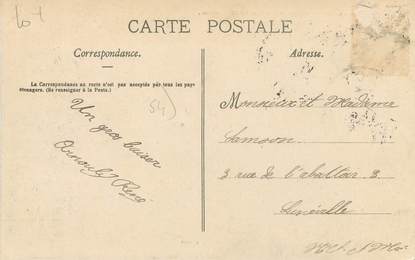 CARTE POSTALE
Correspondance.
Adresse.
La Correspondance au recto n'est pas acceptée par tous les pays
étrangers. (Se renseigner à la Poste.)
54)
Un gros baiser
Arnould René
Monsieur et Madame
Samson
3 rue de l'abattoir 3
Lunéville